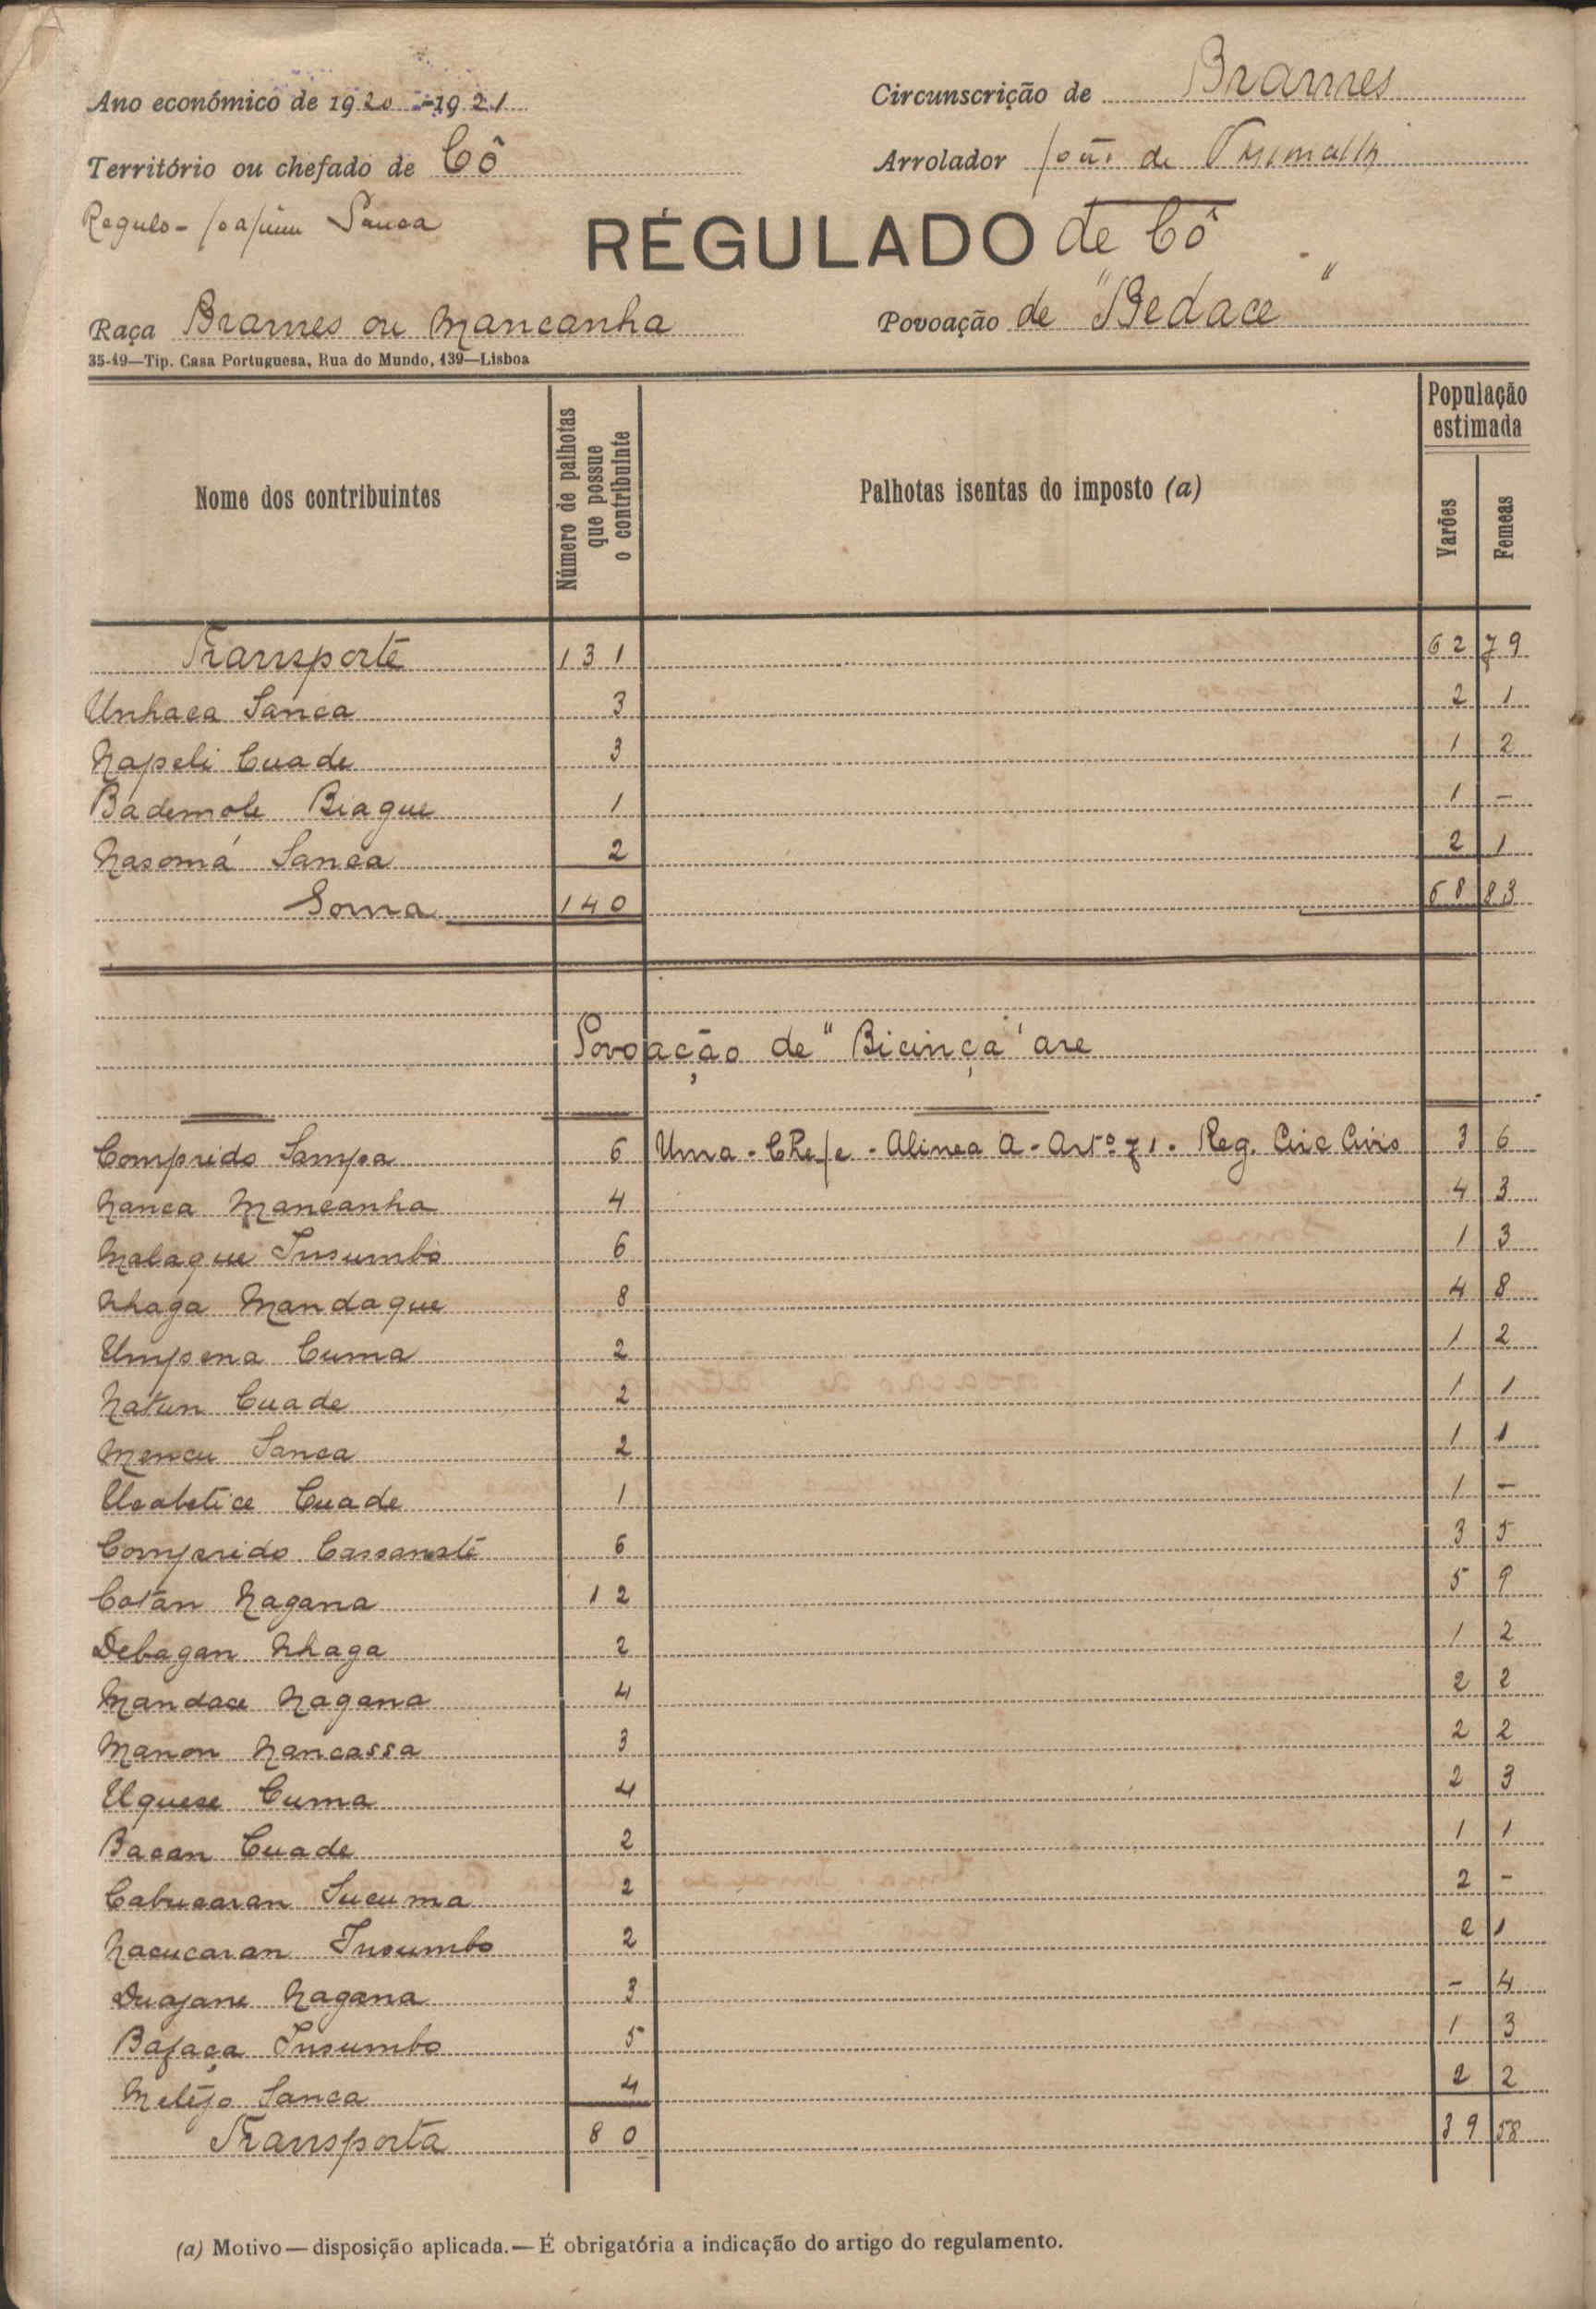 Ano económico de 1920-1921
Circunscrição de Brames
Território ou chefado de Cô
Arrolador João de
Regulo - Joaquim Sanca
RÉGULADO de Cô
Raça Brames ou Mancanha
Povoação de "Bedace"
35-19—Tip. Casa Portuguesa, Rua do Mundo, 139—Lisboa
Nome dos contribuintes
Número de palhotas que possue o contribuinte
Palhotas isentas do imposto (a)
População estimada
Varões
Femeas
Transporte 131 62 79
Unhaca Sanca 3 2 1
Napeli Cuade 3 1 2
Bademole Biague 1 1 -
Nasomá Sanca 2 2 1
Soma 140 68 83
Povoação de "Bicinça" are
Comprido Sampa 6 Uma - Chefe - Alinea A - Artº 71. Reg. Circ Civis 3 6
Nanca Mancanha 4 4 3
Malague Insumbo 6 1 3
Nhaga Mandaque 8 4 8
Umpena Cuma 2 1 2
Natun Cuade 2 1 1
Mencu Sanca 2 1 1
Ucabetice Cuade 1 1 -
Comprido Cassanaté 6 3 5
Cotan Nagana 12 5 9
Debagan Nhaga 2 1 2
Mandace Nagana 4 2 2
Manon Nancassa 3 2 2
Uquese Cuma 4 2 3
Bacan Cuade 2 1 1
Cabucaran Sucuma 2 2 -
Nacucaran Insumbo 2 2 1
Duajane Nagana 3 - 4
Bafaça Insumbo 5 1 3
Melêjo Sanca 4 2 2
Transporta 80 39 58
(a) Motivo — disposição aplicada. — É obrigatória a indicação do artigo do regulamento.